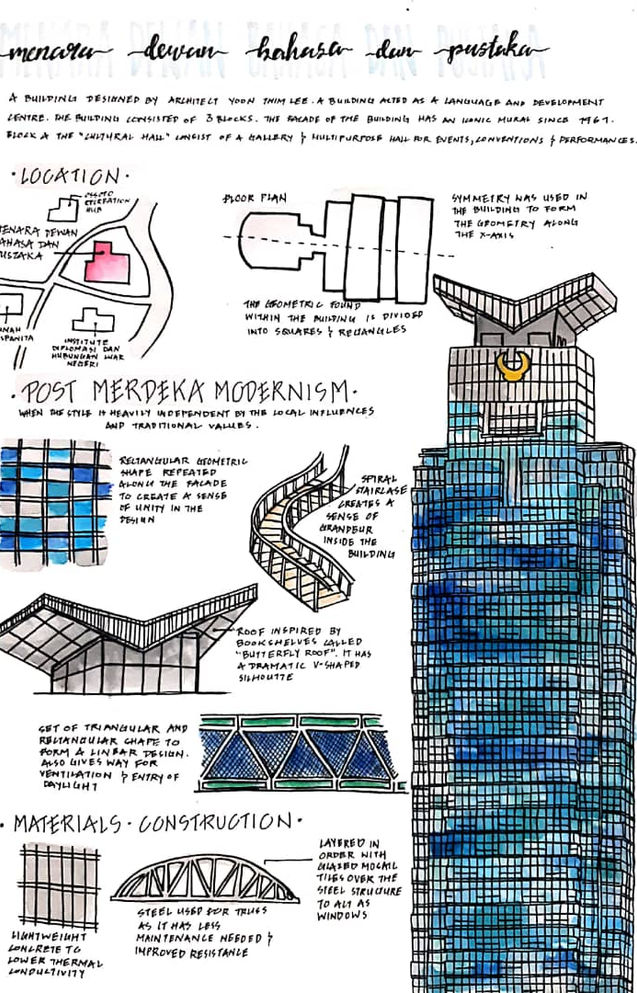 menara dewan bahasa dan pustaka
A BUILDING DESIGNED BY ARCHITECT YOON THIM LEE. A BUILDING ACTED AS A LANGUAGE AND DEVELOPMENT
CENTRE. THE BUILDING CONSISTED OF 3 BLOCKS. THE FACADE OF THE BUILDING HAS AN ICONIC MURAL SINCE 1961.
BLOCK A THE "CULTURAL HALL" CONSIST OF A GALLERY & MULTIPURPOSE HALL FOR EVENTS, CONVENTIONS & PERFORMANCES.
·LOCATION·
RECREATION
HUB
MENARA DEWAN
BAHASA DAN
PUSTAKA
INSTITUTE
DIPLOMASI DAN
HUBUNGAN LUAR
NEGERI
FLOOR PLAN
THE GEOMETRIC FOUND
WITHIN THE BUILDING IS DIVIDED
INTO SQUARES & RECTANGLES
SYMMETRY WAS USED IN
THE BUILDING TO FORM
THE GEOMETRY ALONG
THE X-AXIS
·POST MERDEKA MODERNISM·
WHEN THE STYLE IS HEAVILY INDEPENDENT BY THE LOCAL INFLUENCES
AND TRADITIONAL VALUES.
RECTANGULAR GEOMETRIC
SHAPE REPEATED
ALONG THE FACADE
TO CREATE A SENSE
OF UNITY IN THE
DESIGN
SPIRAL
STAIRCASE
CREATES A
SENSE OF
GRANDEUR
INSIDE THE
BUILDING
ROOF INSPIRED BY
BOOKSHELVES CALLED
"BUTTERFLY ROOF". IT HAS
A DRAMATIC V-SHAPED
SILHOUTTE
SET OF TRIANGULAR AND
RECTANGULAR SHAPE TO
FORM A LINEAR DESIGN.
ALSO GIVES WAY FOR
VENTILATION & ENTRY OF
DAYLIGHT
·MATERIALS·CONSTRUCTION·
LIGHTWEIGHT
CONCRETE TO
LOWER THERMAL
CONDUCTIVITY
STEEL USED FOR TRUSS
AS IT HAS LESS
MAINTENANCE NEEDED &
IMPROVED RESISTANCE
LAYERED IN
ORDER WITH
GLAZED MOSAIC
TILES OVER THE
STEEL STRUCTURE
TO ACT AS
WINDOWS